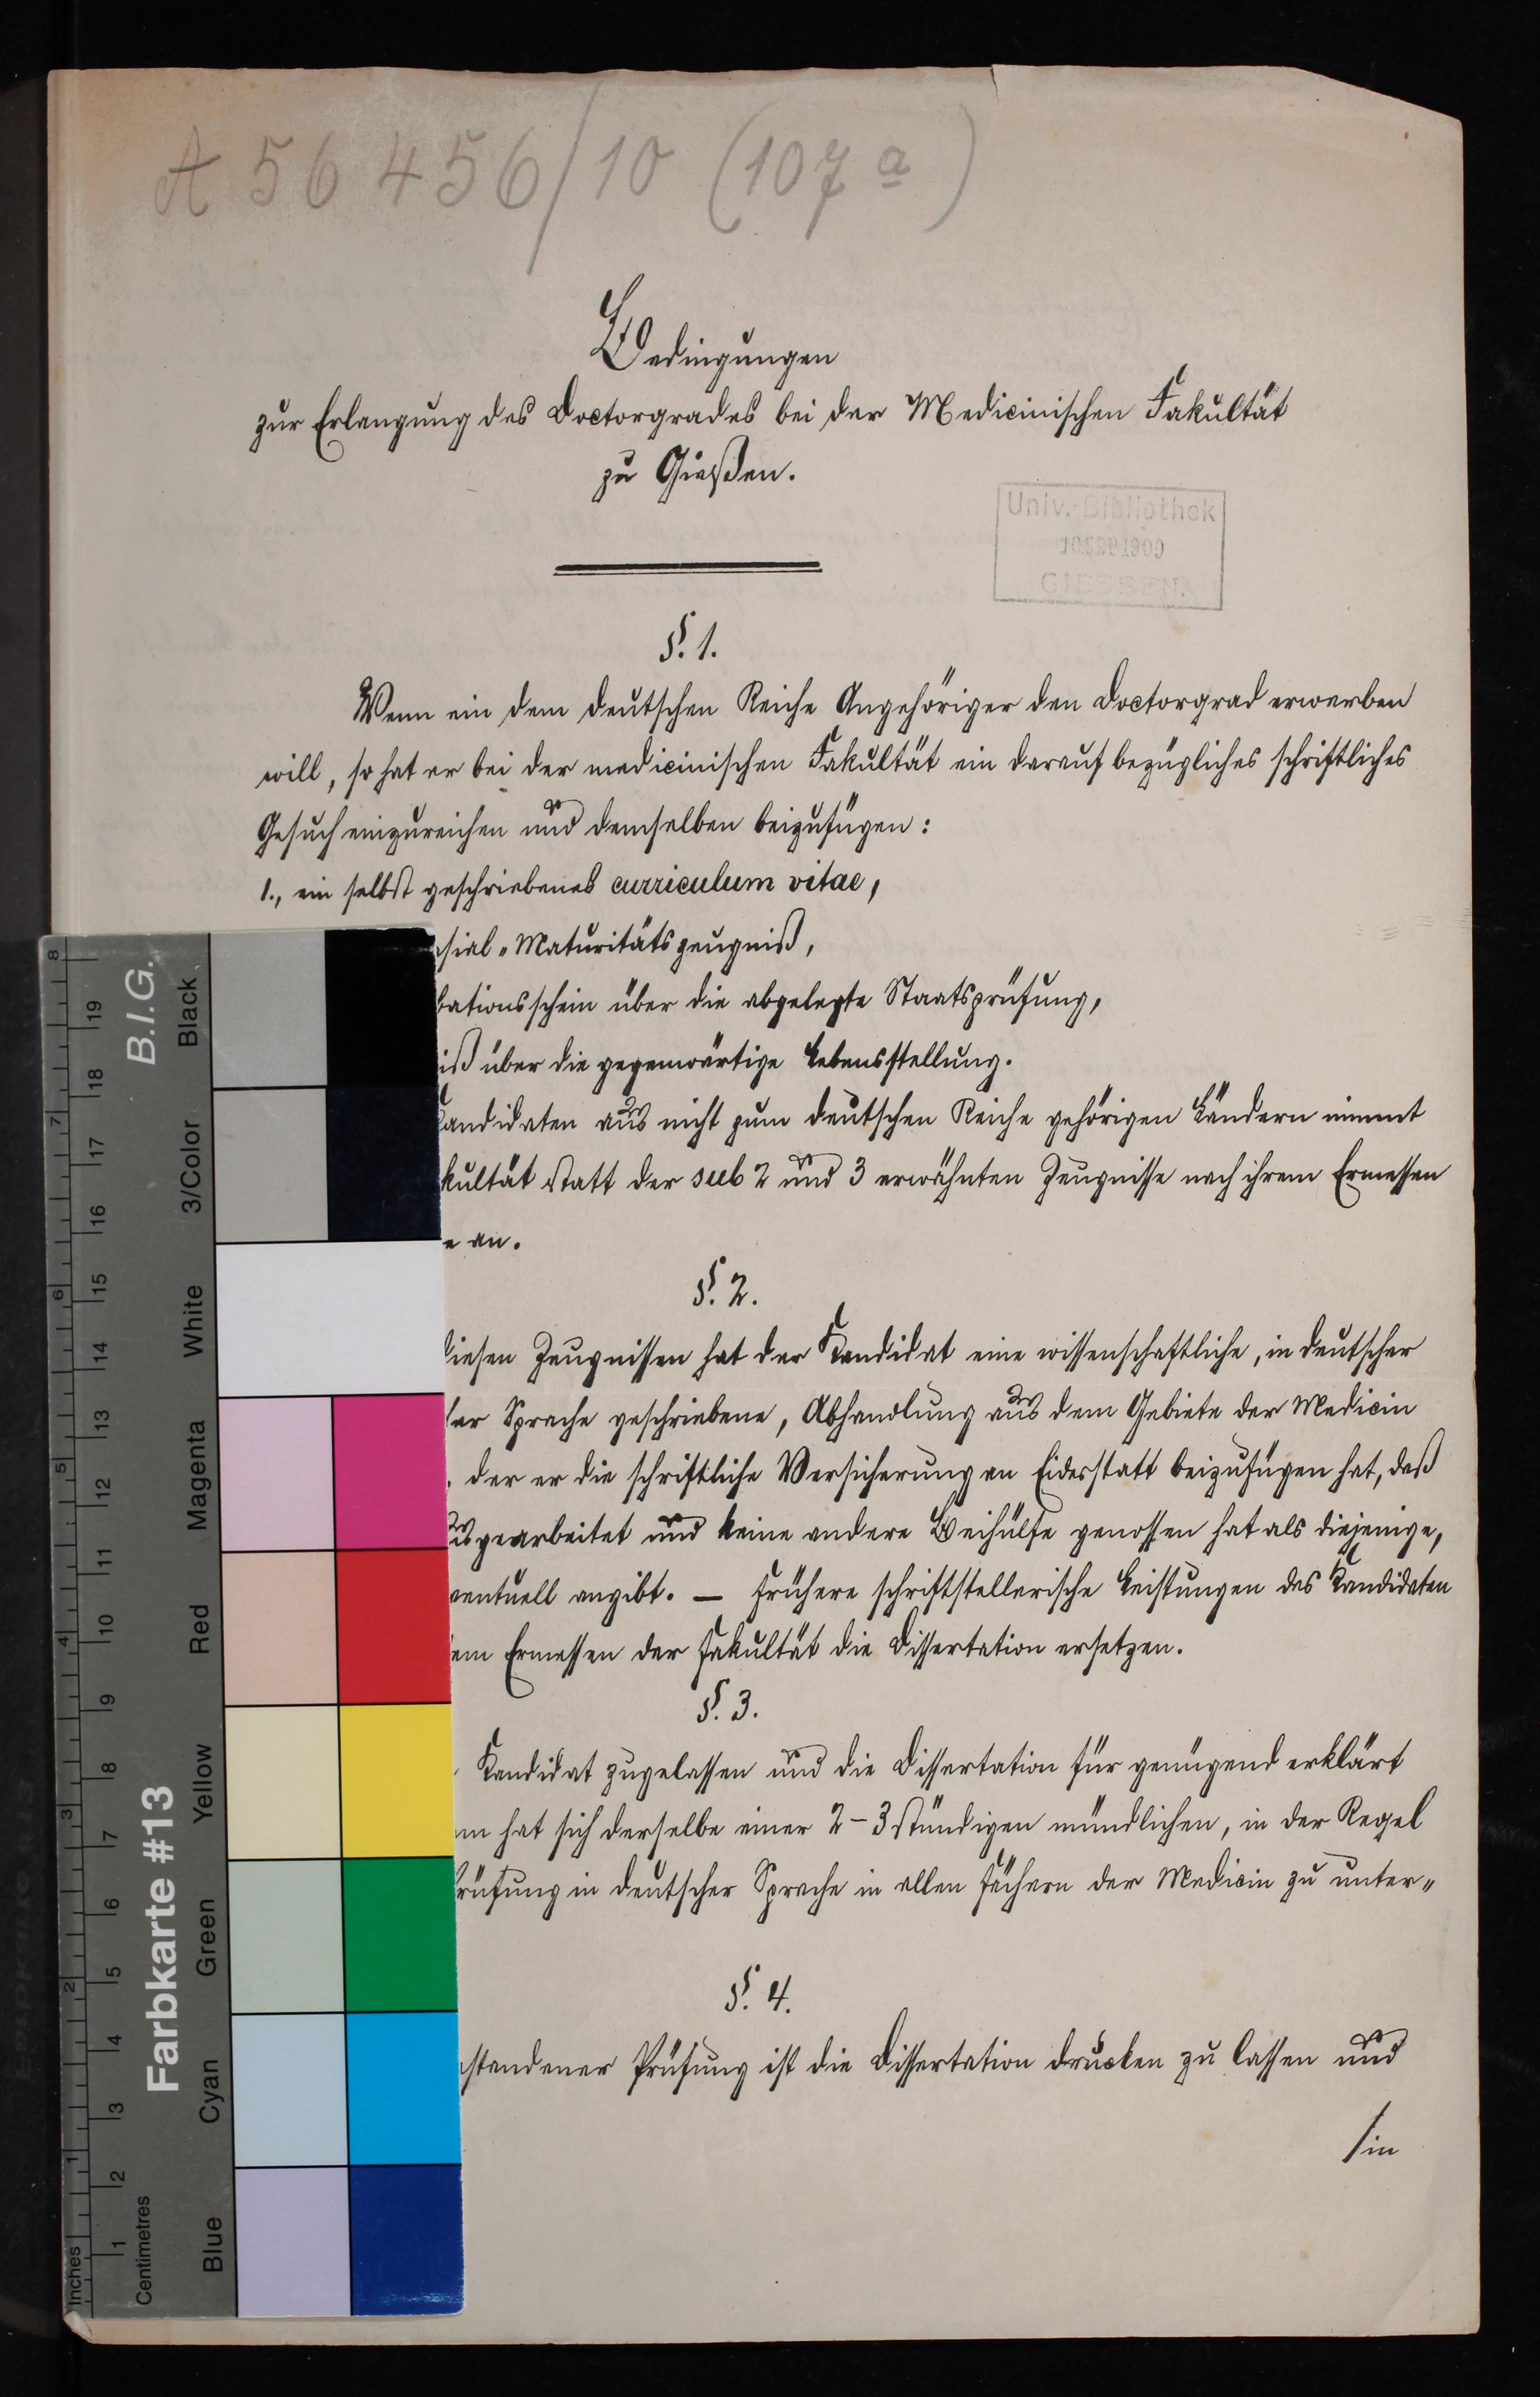 A 56 456/10 (107 a)
Bedingungen
zur Erlangung des Doctorgrades bei der Medicinischen Fakultät
zu Gießen.
Univ.-Bibliothek
GIESSEN.
§. 1.
Wenn ein dem deutschen Reiche Angehöriger den Doctorgrad erwerben
will, so hat er bei der medicinischen Fakultät ein darauf bezügliches schriftliches
Gesuch einzureichen und demselben beizufügen:
1., ein selbst geschriebenes curriculum vitae,
sial-Maturitätszeugniß,
bationsschein über die abgelegte Staatsprüfung,
iß über die gegenwärtige Lebensstellung.
Kandidaten aus nicht zum deutschen Reiche gehörigen Ländern nimmt
kultät statt der sub 2 und 3 erwähnten Zeugnisse nach ihrem Ermessen
e an.
§. 2.
diesen Zeugnissen hat der Kandidat eine wissenschaftliche, in deutscher
her Sprache geschriebene, Abhandlung aus dem Gebiete der Medicin
der er die schriftliche Versicherung an Eidesstatt beizufügen hat, daß
usgearbeitet und keine andere Beihülfe genossen hat als diejenige,
ventuell angibt. — Frühere schriftstellerische Leistungen des Kandidaten
em Ermessen der Fakultät die Dissertation ersetzen.
§. 3.
Kandidat zugelassen und die Dissertation für genügend erklärt
nn hat sich derselbe einer 2-3stündigen mündlichen, in der Regel
rüfung in deutscher Sprache in allen Fächern der Medicin zu unter-
§. 4.
standener Prüfung ist die Dissertation drucken zu lassen und
/in
B.I.G.
Farbkarte #13
Black
3/Color
White
Magenta
Red
Yellow
Green
Cyan
Blue
8 7 6 5 4 3 2 1 Inches
19 18 17 16 15 14 13 12 11 10 9 8 7 6 5 4 3 2 1 Centimetres